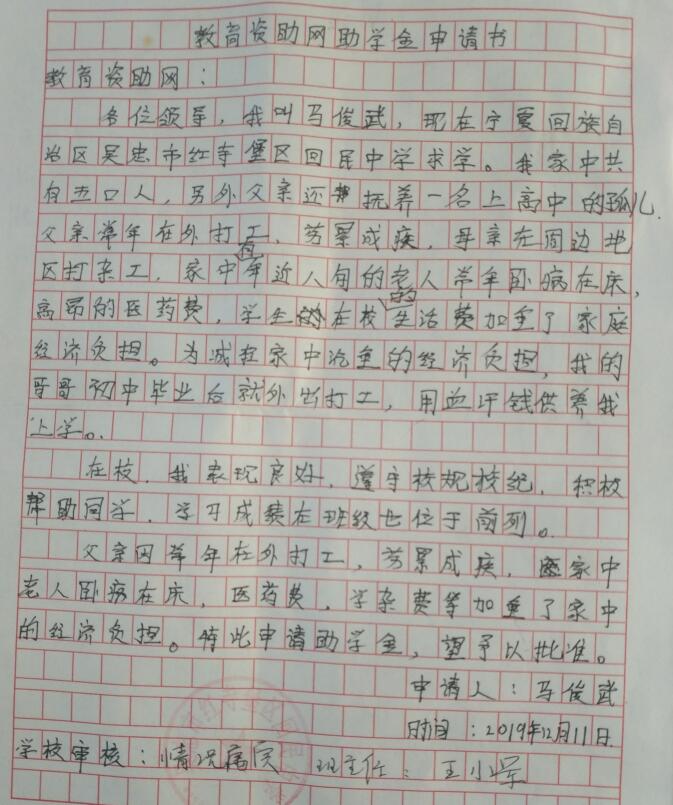 教育资助网助学金申请书
教育资助网：
各位领导，我叫马俊武，现在宁夏回族自
治区吴忠市红寺堡区回民中学求学。我家中共
有五口人，另外父亲还帮抚养一名上高中的孤儿．
父亲常年在外打工，劳累成疾，母亲在周边地
区打杂工，家中有年近八旬的老人常年卧病在床，
高昂的医药费，学生在校的生活费加重了家庭
经济负担。为减轻家中沉重的经济负担，我的
哥哥初中毕业后就外出打工，用血汗钱供养我
上学。
在校，我表现良好，遵守校规校纪，积极
帮助同学，学习成费在班级也位于前列。
父亲因常年在外打工，劳累成疾，家中
老人卧病在床，医药费，学杂费等加重了家中
的经济负担。特此申请助学金，望予以批准。
申请人：马俊武
时间：2019年12月11日.
学校审核：情况属实 班主任：王小